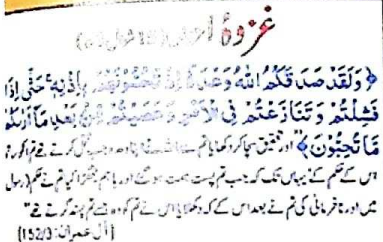 غزوۂ
﴿ وَلَقَدْ صَدَقَكُمُ اللهُ وَعْدَهُ إِذْ تَحُسُّونَهُم بِإِذْنِهِ ۚ حَتَّى إِذَا
فَشِلْتُمْ وَتَنَازَعْتُمْ فِي الْأَمْرِ وَعَصَيْتُم مِّن بَعْدِ مَا أَرَاكُم
مَّا تُحِبُّونَ ﴾ "اور تحقیق سچا کر دکھایا تم سے اللہ نے
اس کے حکم کے یہاں تک کہ جب تم پست ہمت ہو گئے اور باہم جھگڑا کیا تم نے حکم (رسول
میں اور نافرمانی کی تم نے بعد اس کے کہ دکھایا اس نے تم کو وہ جسے تم پسند کرتے تھے"
[آل عمران: 152/3]